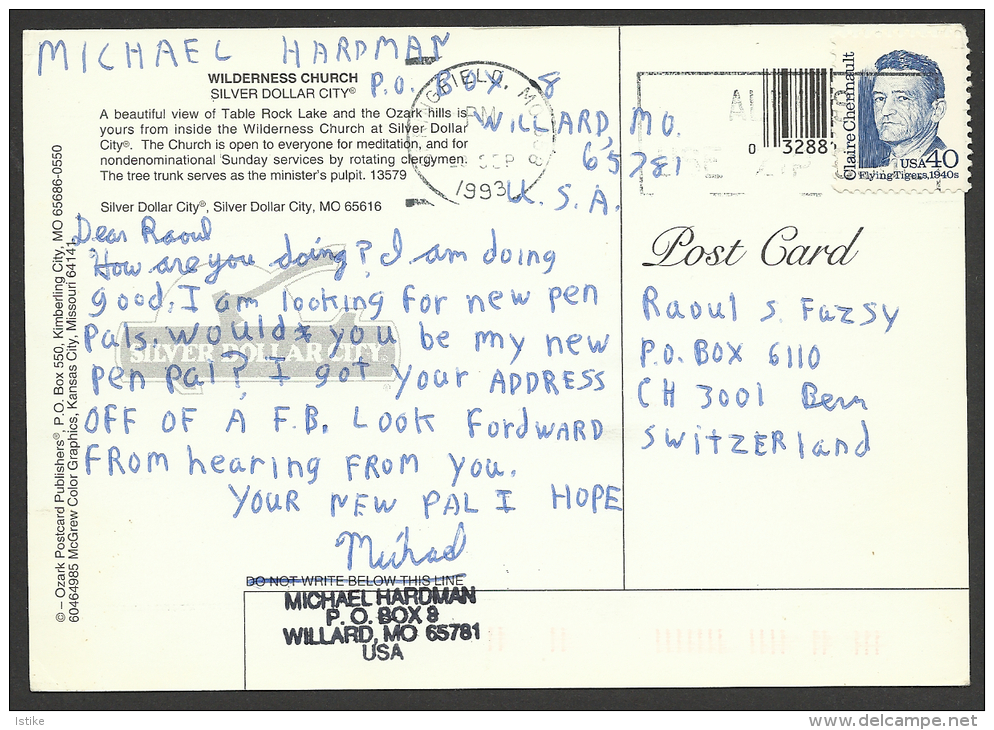 MICHAEL HARDMAN
P.O. BOX 8
WILLARD, MO.
65781
U.S.A.
WILDERNESS CHURCH
SILVER DOLLAR CITY®
A beautiful view of Table Rock Lake and the Ozark hills is
yours from inside the Wilderness Church at Silver Dollar
City®. The Church is open to everyone for meditation, and for
nondenominational Sunday services by rotating clergymen.
The tree trunk serves as the minister's pulpit. 13579
Silver Dollar City®, Silver Dollar City, MO 65616
Dear Raoul
How are you doing? I am doing
good. I am looking for new pen
pals. would you be my new
pen pal? I got your ADDRESS
OFF OF A F.B. LOOK FordWARD
FROM hearing FROM YOU.
YOUR NEW PAL I HOPE
Michael
SILVER DOLLAR CITY
DO NOT WRITE BELOW THIS LINE
MICHAEL HARDMAN
P. O. BOX 8
WILLARD, MO 65781
USA
© – Ozark Postcard Publishers®, P.O. Box 550, Kimberling City, MO 65686-0550
60464985 McGrew Color Graphics, Kansas City, Missouri 64141
SPRINGFIELD, MO
PM
SEP
1993
0 3288
Claire Chennault
USA 40
Flying Tigers, 1940s
Post Card
Raoul S. Fazsy
P.O. BOX 6110
CH 3001 Bern
SWITZERland
Istike
www.delcampe.net